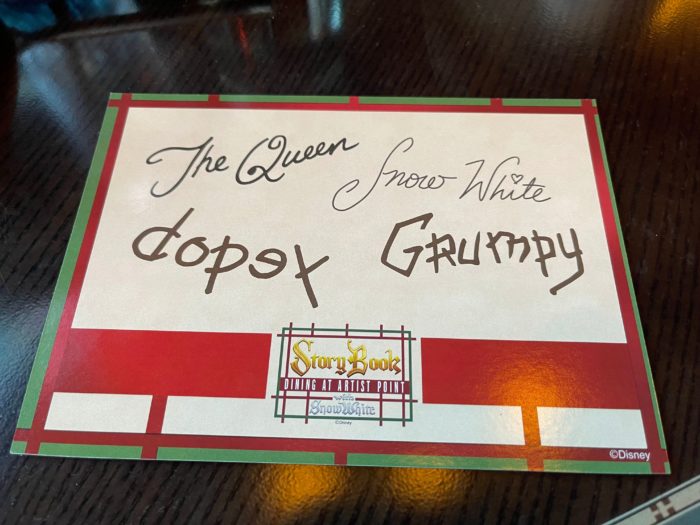 The Queen
Snow White
dopey
Grumpy
Story Book
DINING AT ARTIST POINT
with
Snow White
©Disney
©Disney